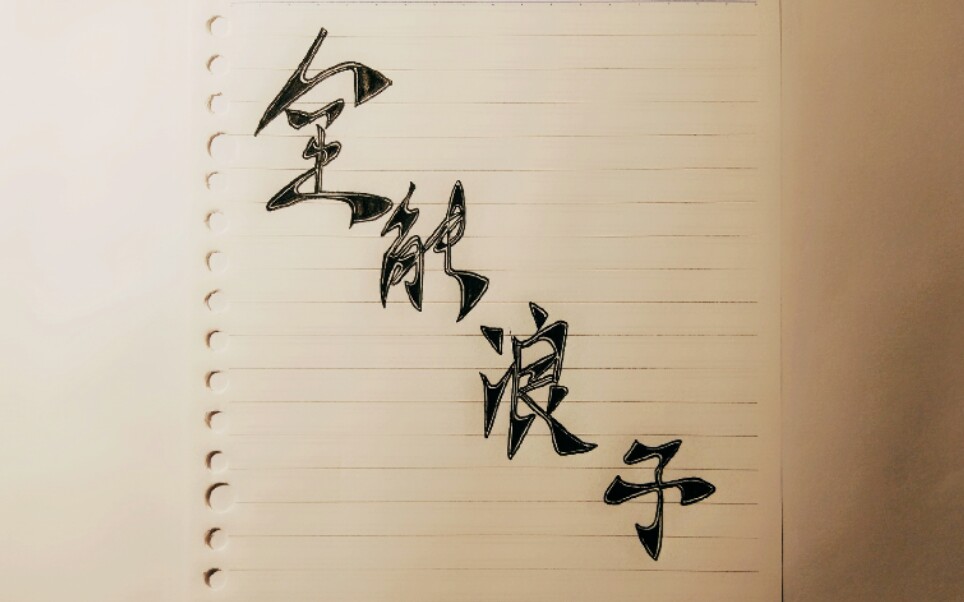 全能浪子